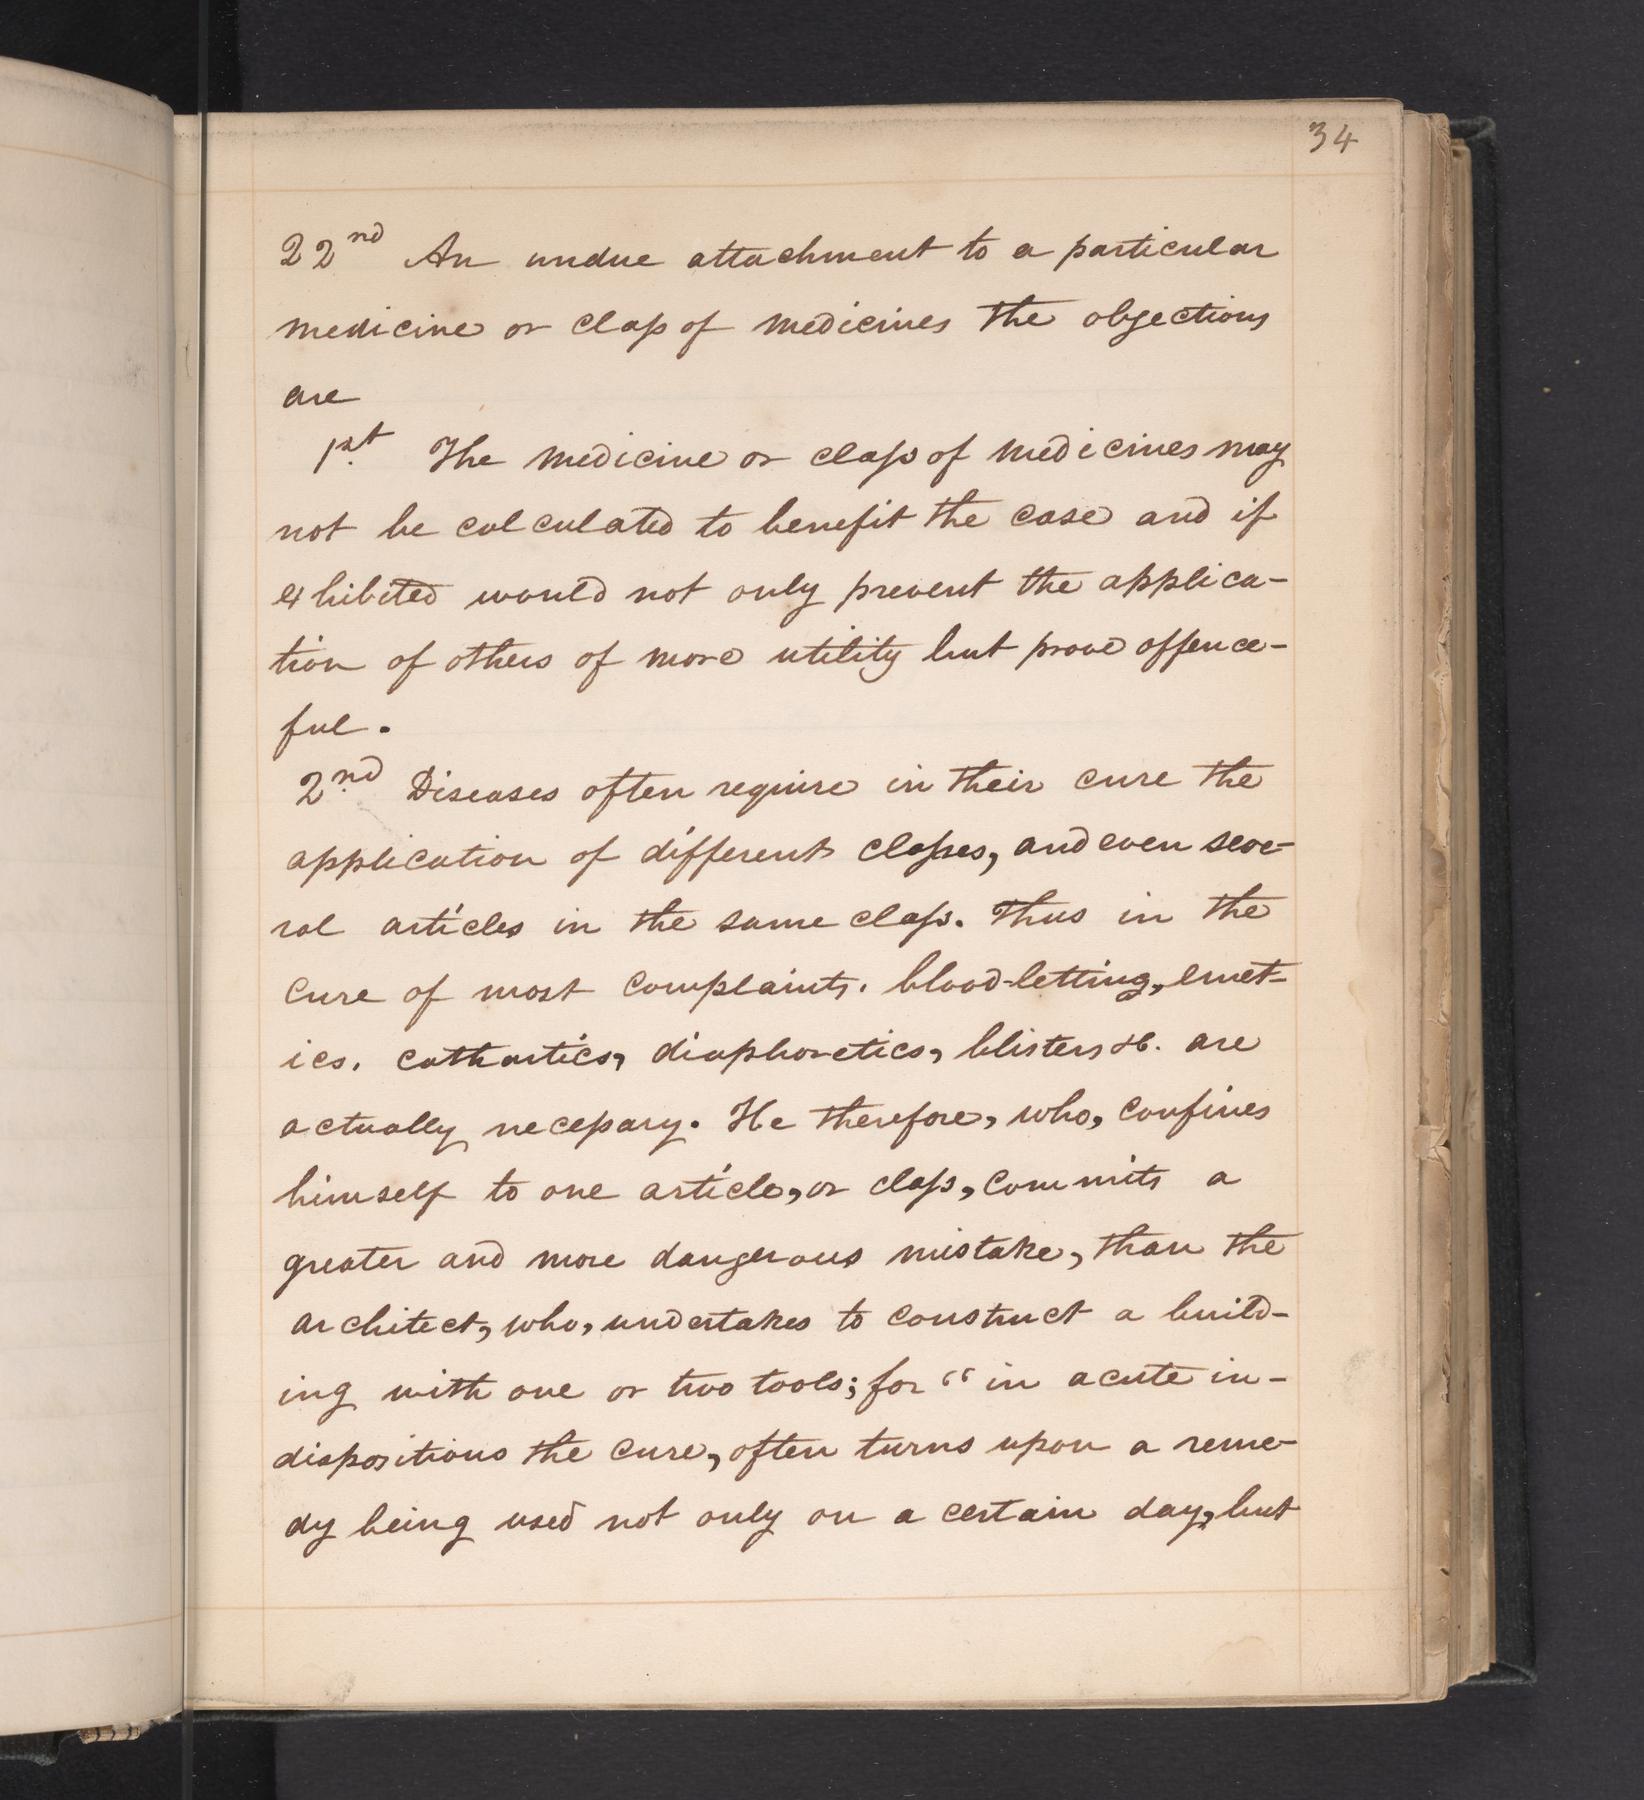 34
22nd An undue attachment to a particular
medicine or class of medicines the objections
are
1st. The medicine or class of medicines may
not be calculated to benefit the case and if
exhibited would not only prevent the applica-
tion of others of more utility but prove offence-
ful.
2.nd Diseases often require in their cure the
application of different classes, and even seve-
ral articles in the same class. Thus in the
cure of most complaints. blood-letting, emet-
ics. cathartics, diaphoretics, blisters &c. are
actually necessary. He therefore, who, confines
himself to one article, or class, commits a
greater and more dangerous mistake, than the
architect, who, undertakes to construct a build-
ing with one or two tools; for “ in acute in-
dispositions the cure, often turns upon a reme-
dy being used not only on a certain day, but